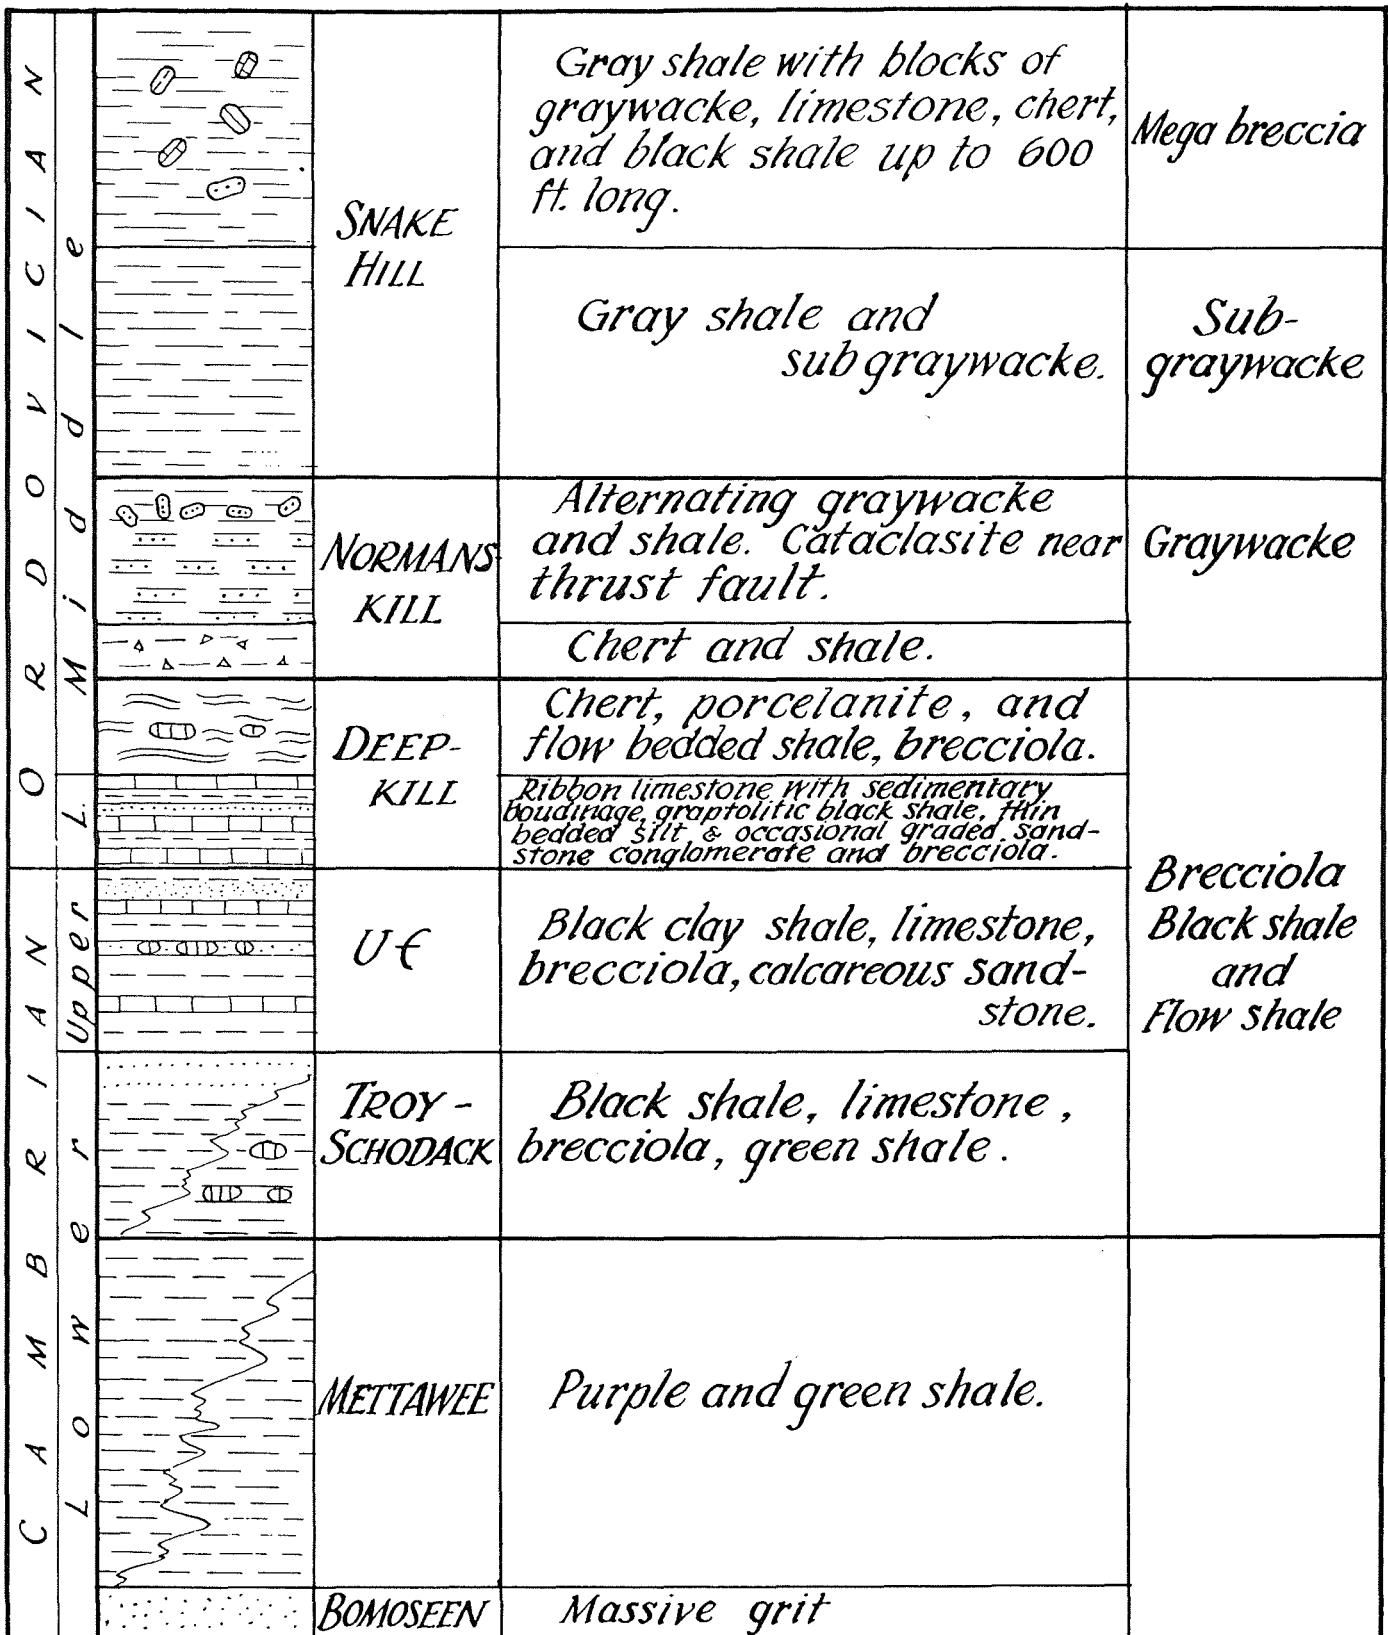 ORDOVICIAN
Middle
SNAKE
HILL
Gray shale with blocks of
graywacke, limestone, chert,
and black shale up to 600
ft. long.
Mega breccia
Gray shale and
subgraywacke.
Sub-
graywacke
NORMANS
KILL
Alternating graywacke
and shale. Cataclasite near
thrust fault.
Graywacke
Chert and shale.
DEEP-
KILL
Chert, porcelanite, and
flow bedded shale, brecciola.
L.
Ribbon limestone with sedimentary
boudinage, graptolitic black shale, thin
bedded silt & occasional graded sand-
stone conglomerate and brecciola.
Brecciola
Black shale
and
Flow shale
CAMBRIAN
Upper
U Є
Black clay shale, limestone,
brecciola, calcareous sand-
stone.
Lower
TROY-
SCHODACK
Black shale, limestone,
brecciola, green shale.
METTAWEE
Purple and green shale.
BOMOSEEN
Massive grit